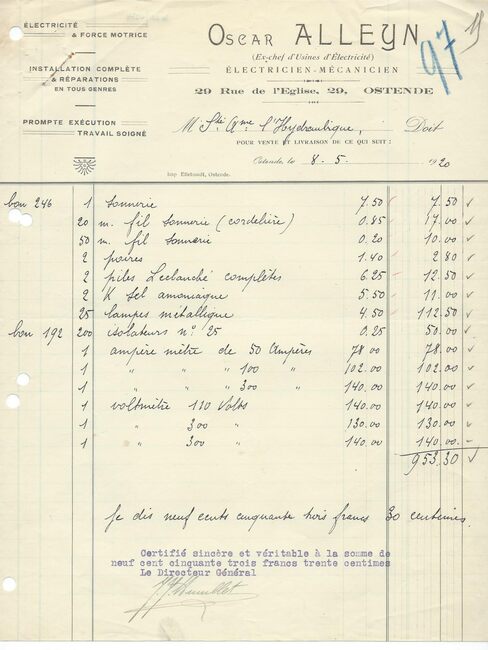 ÉLECTRICITÉ
& FORCE MOTRICE
INSTALLATION COMPLÈTE
& RÉPARATIONS
EN TOUS GENRES
PROMPTE EXÉCUTION
TRAVAIL SOIGNÉ
OSCAR ALLEYN
(Ex-chef d'Usines d'Électricité)
ÉLECTRICIEN-MÉCANICIEN
29 Rue de l'Eglise, 29, OSTENDE
97
M Sté Ame l'Hydraulique, Doit
POUR VENTE ET LIVRAISON DE CE QUI SUIT :
Ostende, le 8. 5. 1920
Imp Elleboudt, Ostende.
bon 246 1 sonnerie 7.50 7.50
20 m. fil sonnerie (cordelière) 0.85 17.00
50 m. fil sonnerie 0.20 10.00
2 poires 1.40 2.80
2 piles Leclanché complètes 6.25 12.50
2 K sel amoniaque 5.50 11.00
25 lampes métallique 4.50 112.50
bon 192 200 isolateurs n° 25 0.25 50.00
1 ampère mètre de 50 Ampères 78.00 78.00
1 " " " 100 " 102.00 102.00
1 " " " 300 " 140.00 140.00
1 voltmètre 110 Volts 140.00 140.00
1 " 300 " 130.00 130.00
1 " 300 " 140.00 140.00
953.30
Je dis neuf cents cinquante trois francs 30 centimes.
Certifié sincère et véritable à la somme de
neuf cent cinquante trois francs trente centimes
Le Directeur Général